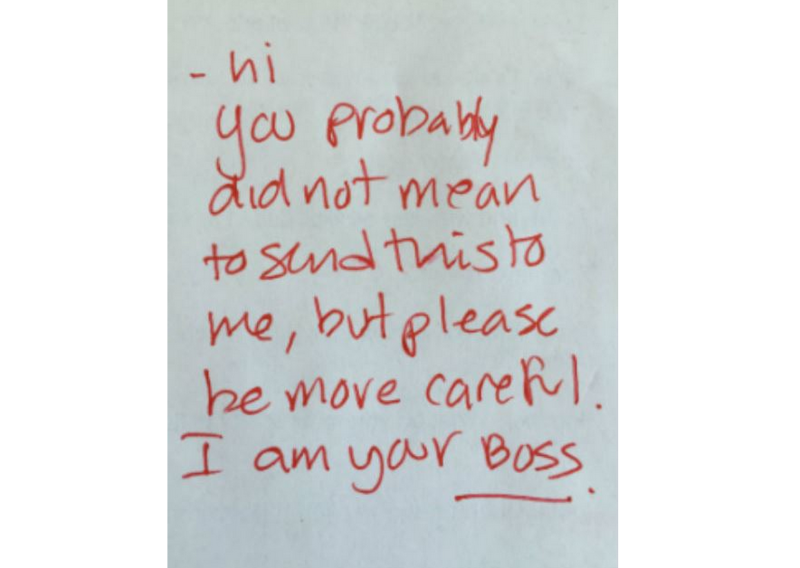 - hi
you probably
did not mean
to send this to
me, but please
be more careful.
I am your Boss.